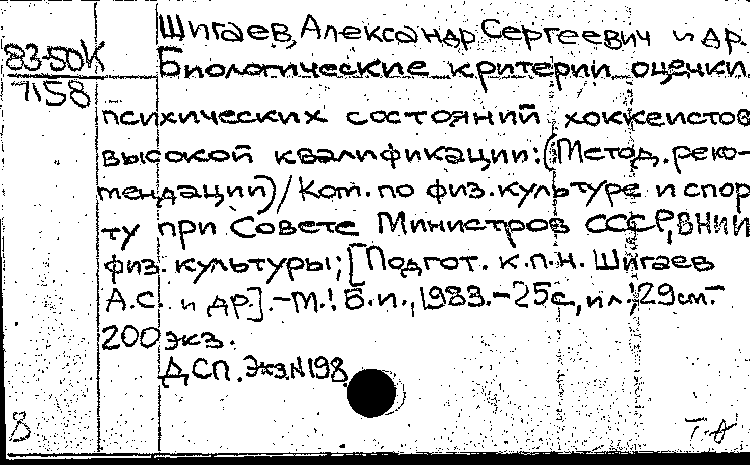 Шигаев, Александр Сергеевич и др.
83-50К
Биологические критерии оценки
7158
психических состояний хоккеистов
высокой квалификации: (Метод. реко-
мендации) / Ком. по физ. культуре и спор
ту при Совете Министров СССР, ВНИИ
физ. культуры; [Подгот. к.п.н. Шигаев
А.С. и др]. -М.: Б.и., 1983. - 25с, ил.; 29см.-
200 экз.
ДСП. Экз.N198
8